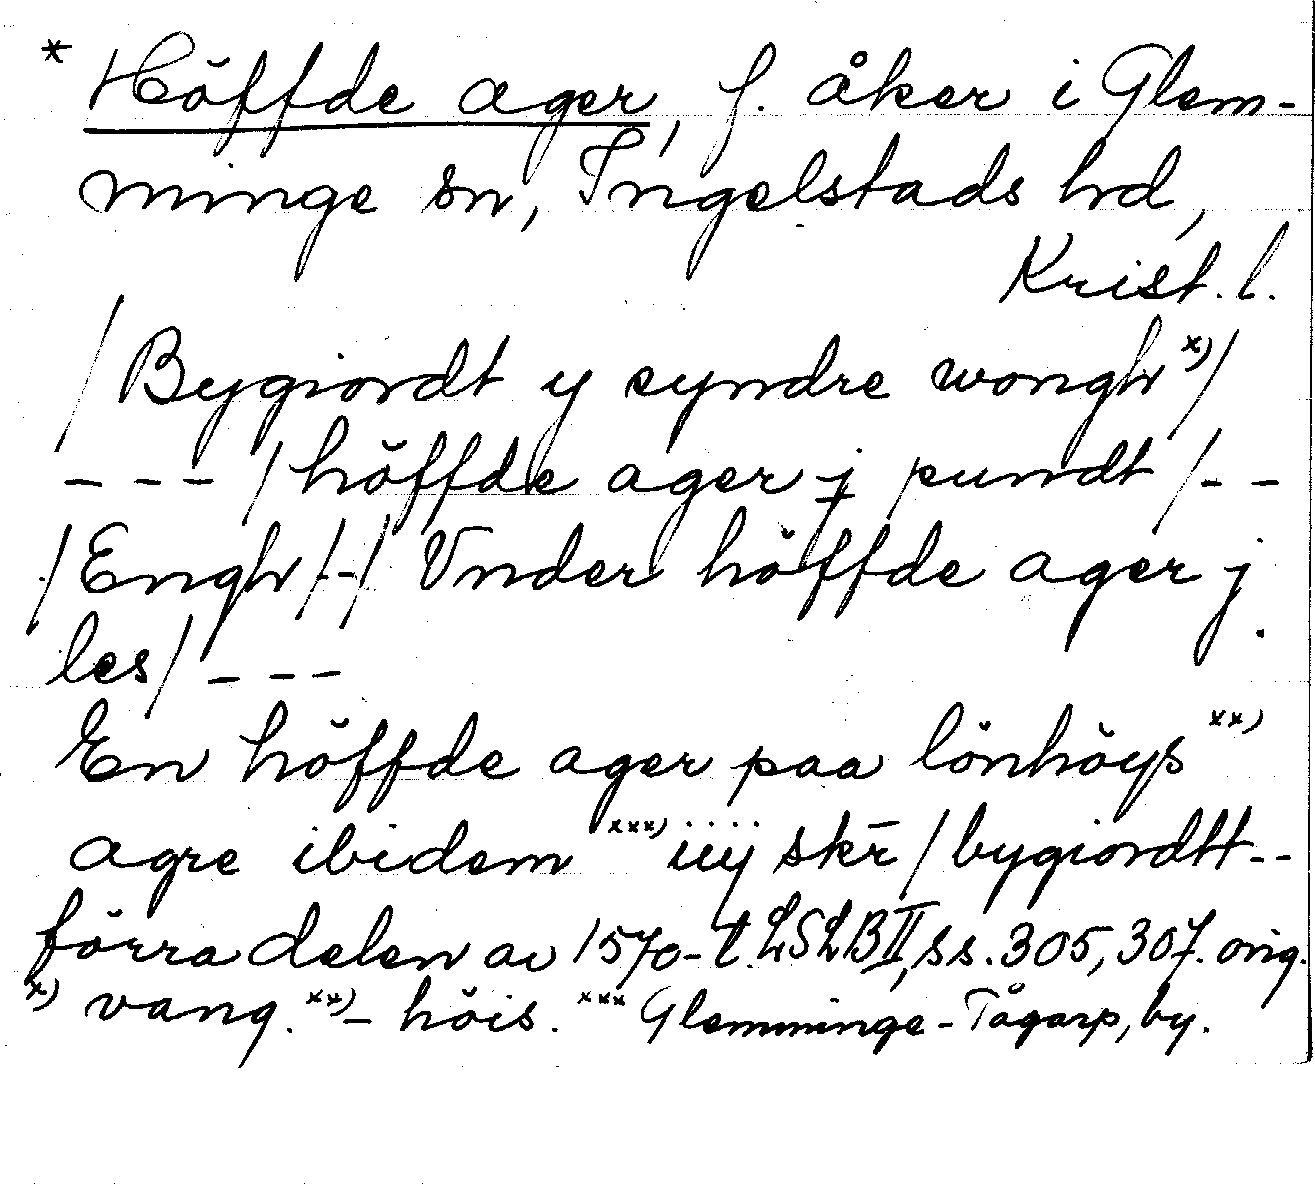 * Höffde ager, f. åker i Glem-
minge sn, Ingelstads hrd,
Krist. l.
/Bygiordt y syndre wongh x)/
--- /höffde ager j pundt /--
/Engh/-/ Vnder höffde ager j
les/ ---
En höffde ager paa lönhöys xx)
agre ibidem xxx) iiij skr̄ /bygiordtt--
förra delen av 1570-t. LSLB II, ss. 305, 307. orig.
x) vang. xx) - höis. xxx Glemminge-Tågarp, by.